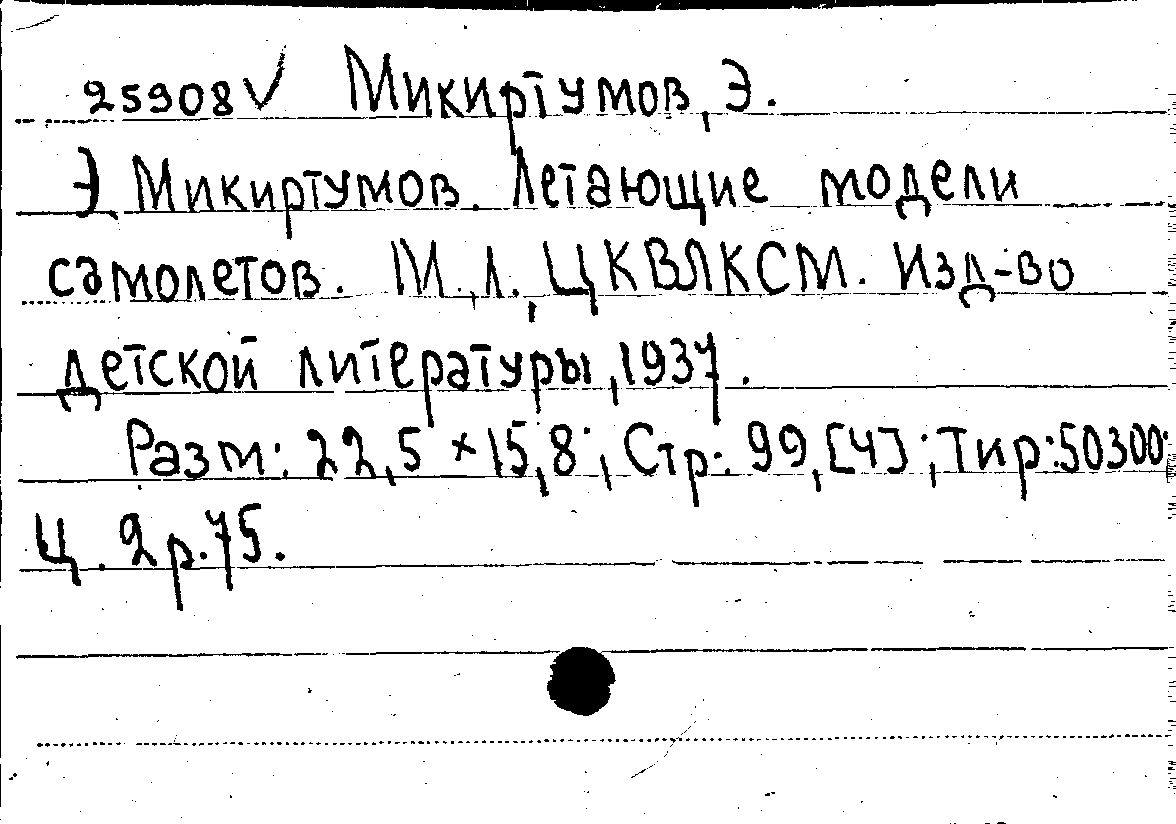 25908 √ Микиртумов, Э.
Э. Микиртумов. Летающие модели
самолетов. М.,Л., ЦК ВЛКСМ. Изд-во
детской литературы, 1937.
Разм: 22,5 × 15,8; Стр: 99, [4]; Тир: 50300;
Ц. 2 р. 75.